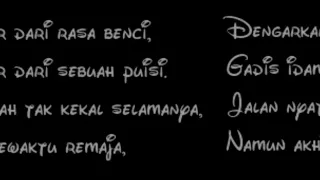 R DARI RASA BENCI,
R DARI SEBUAH PUISI.
AH TAK KEKAL SELAMANYA,
EWAKTU REMAJA,
DENGARKAN
GADIS IDAM
JALAN NYAT
NAMUN AKH